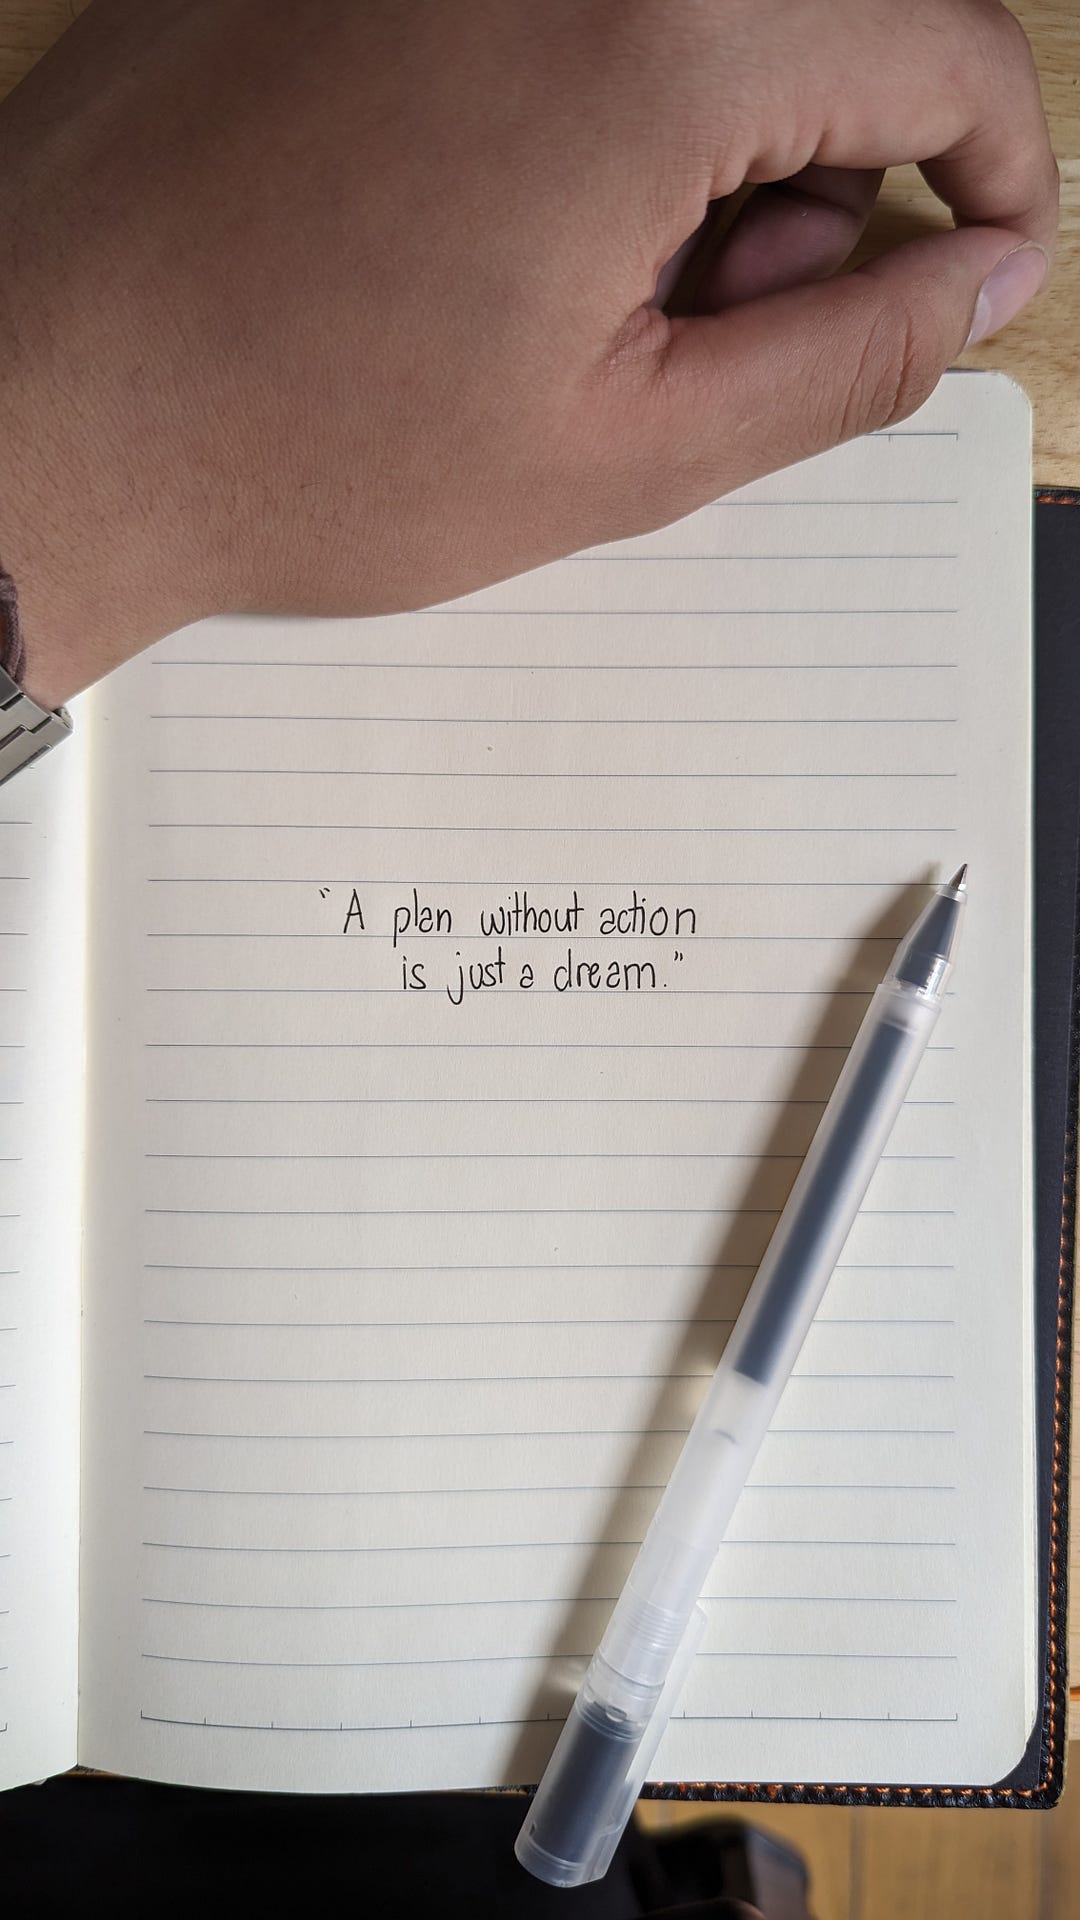 "A plan without action
is just a dream."